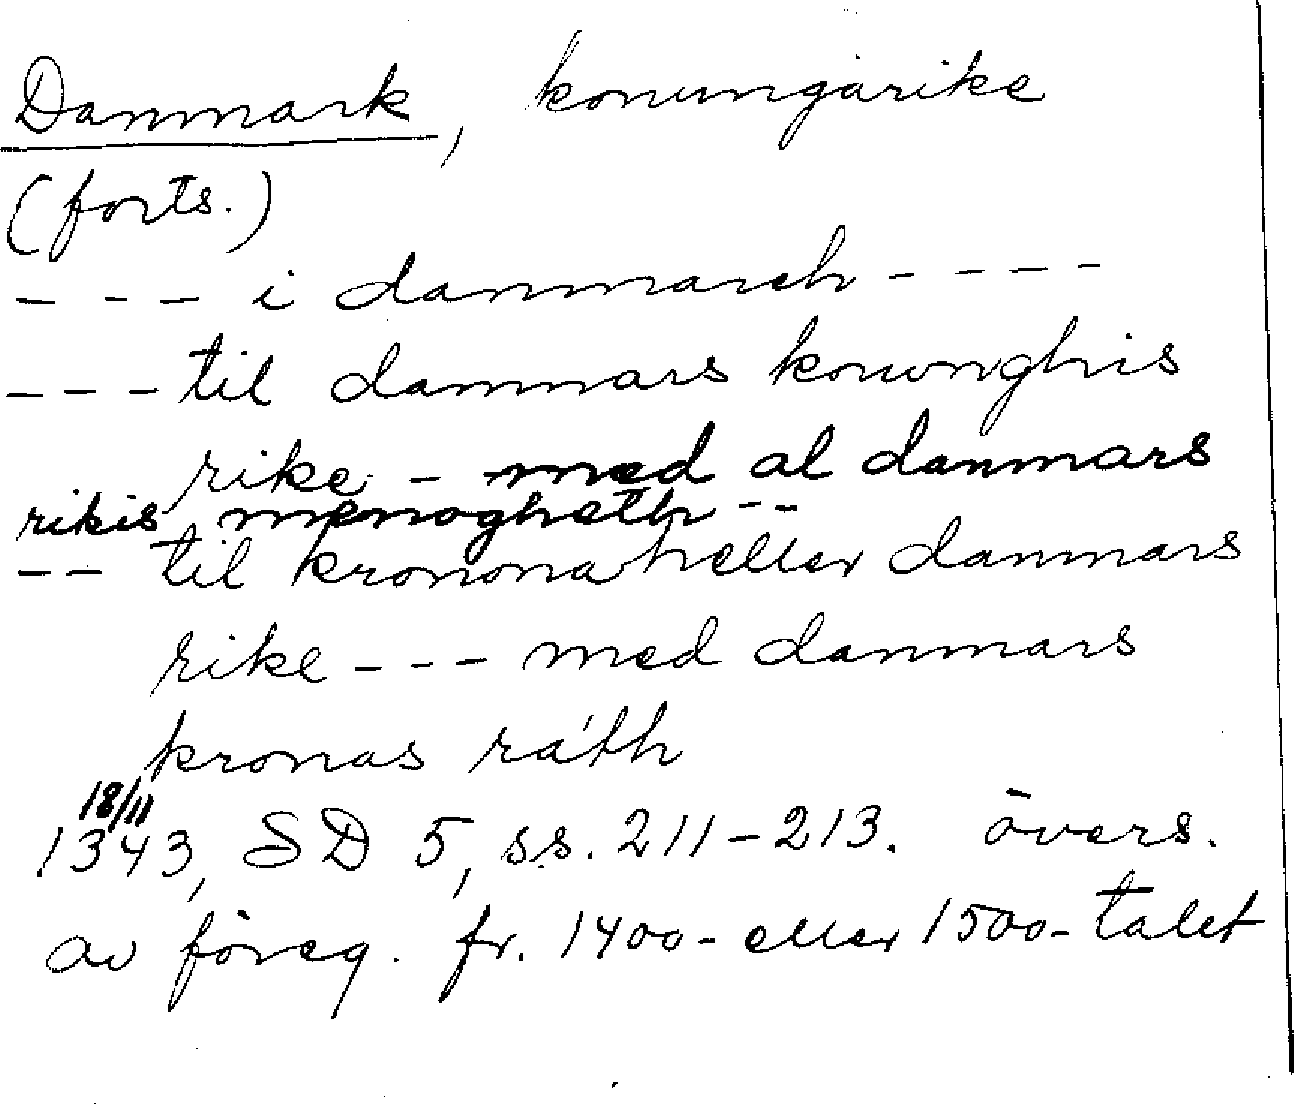 Danmark, konungarike
(forts.)
--- i danmarch ----
--- til danmars konunghis
rike - med al danmars
rikis menogheth --
-- til kronona heller danmars
rike --- med danmars
kronas ráth
18/11
1343, SD 5, ss. 211-213. övers.
av föreg. fr. 1400- eller 1500-talet